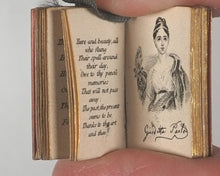 There and beauty, all
who thing
Their spell around
their day,
Owe to thy pencil
memories
That will not pass
away
The past, the present
seems to be
Thanks to thy art
and thee!
Giuditta Pasta